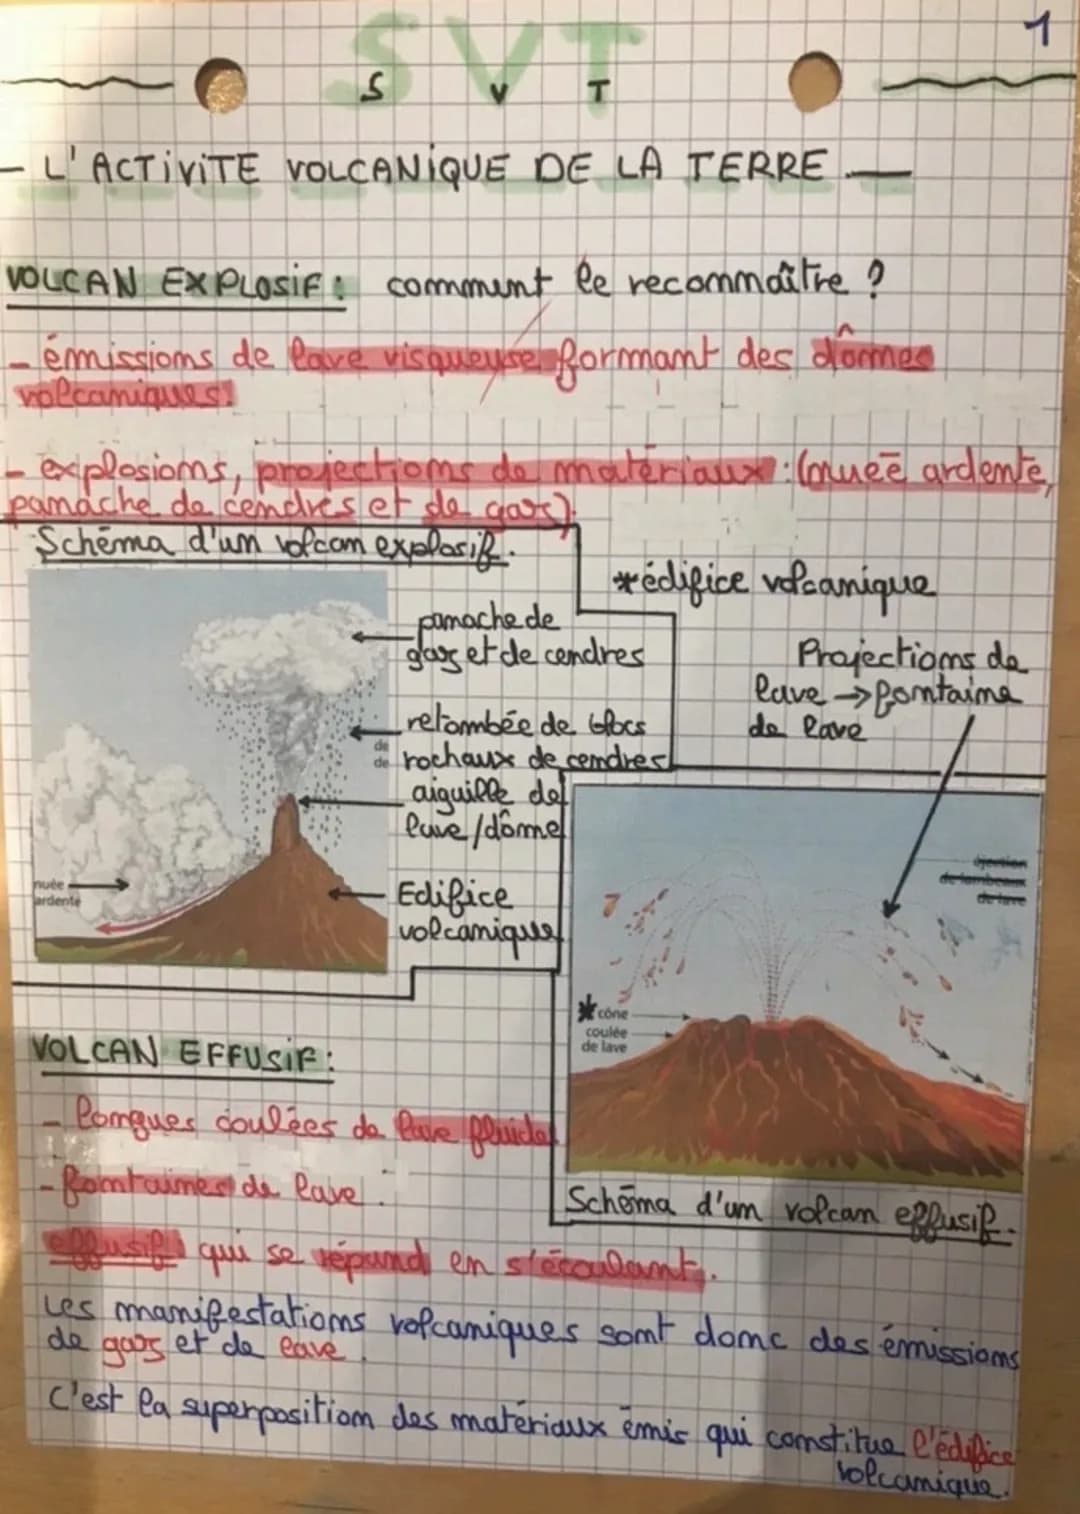 1
SVT
S V T
- L'ACTIVITE VOLCANIQUE DE LA TERRE -
VOLCAN EXPLOSIF : comment le reconnaître ?
- émissions de lave visqueuse formant des dômes
volcaniques.
- explosions, projections de matériaux : (nuée ardente,
panache de cendres et de gaz).
Schéma d'un volcan explosif.
panache de
gaz et de cendres
retombée de blocs
de
de
rochaux de cendres
aiguille de
lave / dôme
nuée
ardente
Edifice
volcanique
*édifice volcanique
Projections de
lave → fontaine
de lave
éjection
de lambeaux
de lave
* cône
coulée
de lave
Schéma d'un volcan effusif.
VOLCAN EFFUSIF :
- longues coulées de lave fluide
- fontaines de lave.
effusif qui se répand en s'écoulant.
Les manifestations volcaniques sont donc des émissions
de gaz et de lave.
C'est la superposition des matériaux émis qui constitue l'édifice
volcanique.